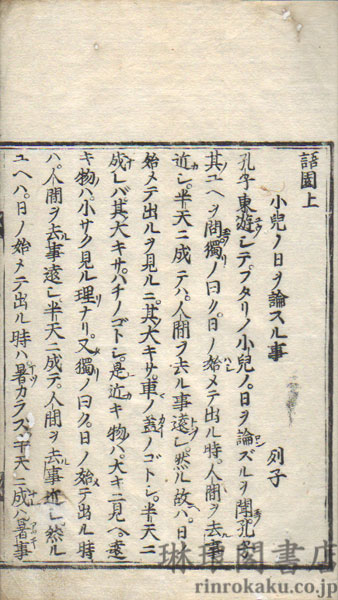 語園上
小兒ノ日ヲ論スル事 列子
孔子東游シテフタリノ小兒ノ日ヲ論ズルヲ聞孔子
其ユヘヲ問獨ノ曰ク日ノ始メテ出ル時人間ヲ去事
近シ半天ニ成テハ人間ヲ去ル事遠シ然ル故ハ日
始メテ出ルヲ見ルニ其大キサ車ノ蓋ノゴトシ半天ニ
成レバ其大キサハチノゴトシ是近キ物ハ大キニ見ヘ遠
キ物ハ小サク見ル理ナリ又獨ノ曰ク日ノ始テ出ル時
ハ人間ヲ去事遠シ半天ニ成テ人間ヲ去事近シ然ル
ユヘハ日ノ始メテ出ル時ハ暑カラス半天ニ成ハ暑事
琳琅閣書店
rinrokaku.co.jp